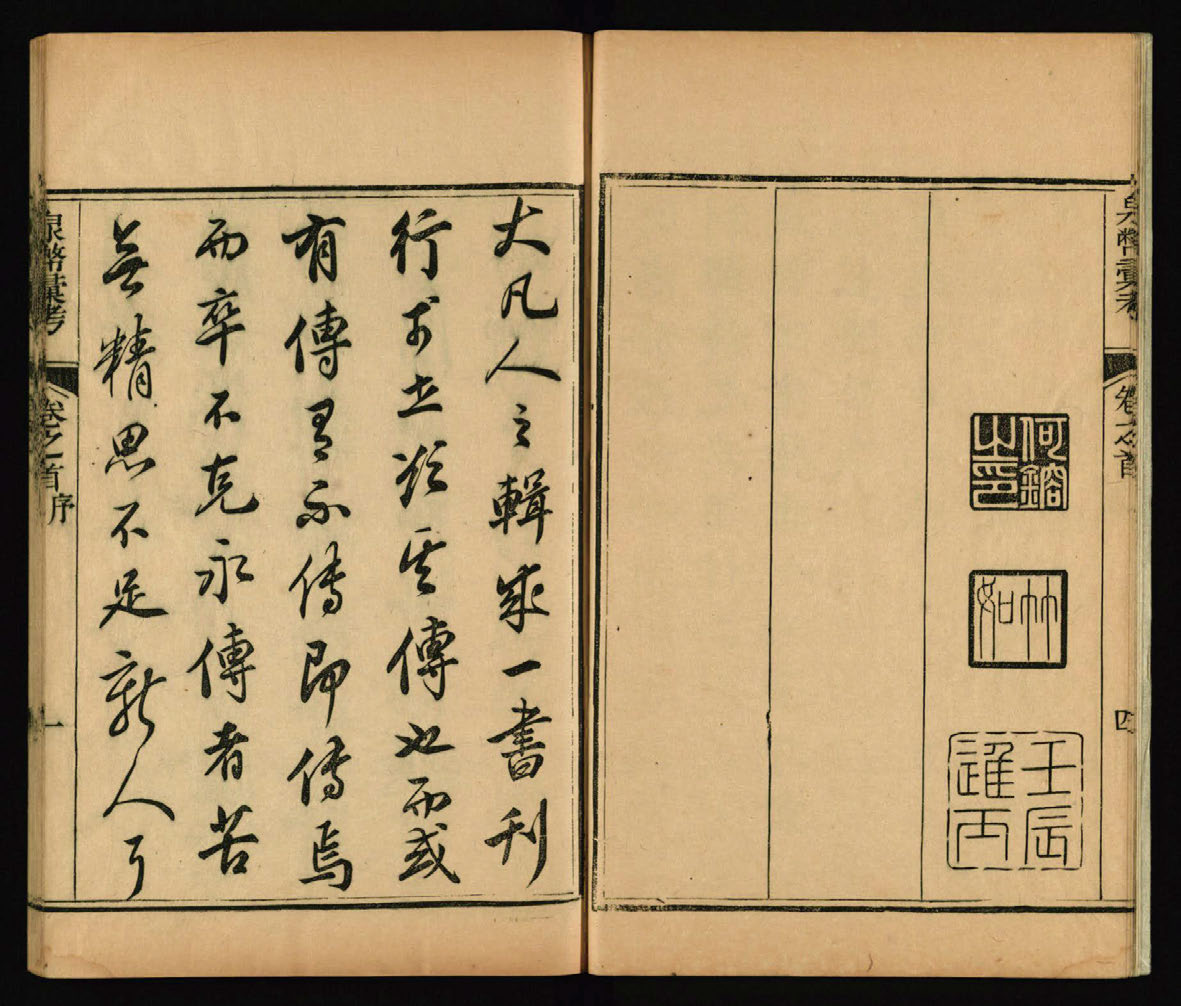 泉幣彙考 卷之首 四
何鎔之印
竹如
壬辰
大凡人之輯成一書刊
行於世欲其傳也而或
有傳有不傳即傳焉
而卒不克永傳者苦
無精思不足新人耳
泉幣彙考 卷之首 序 一